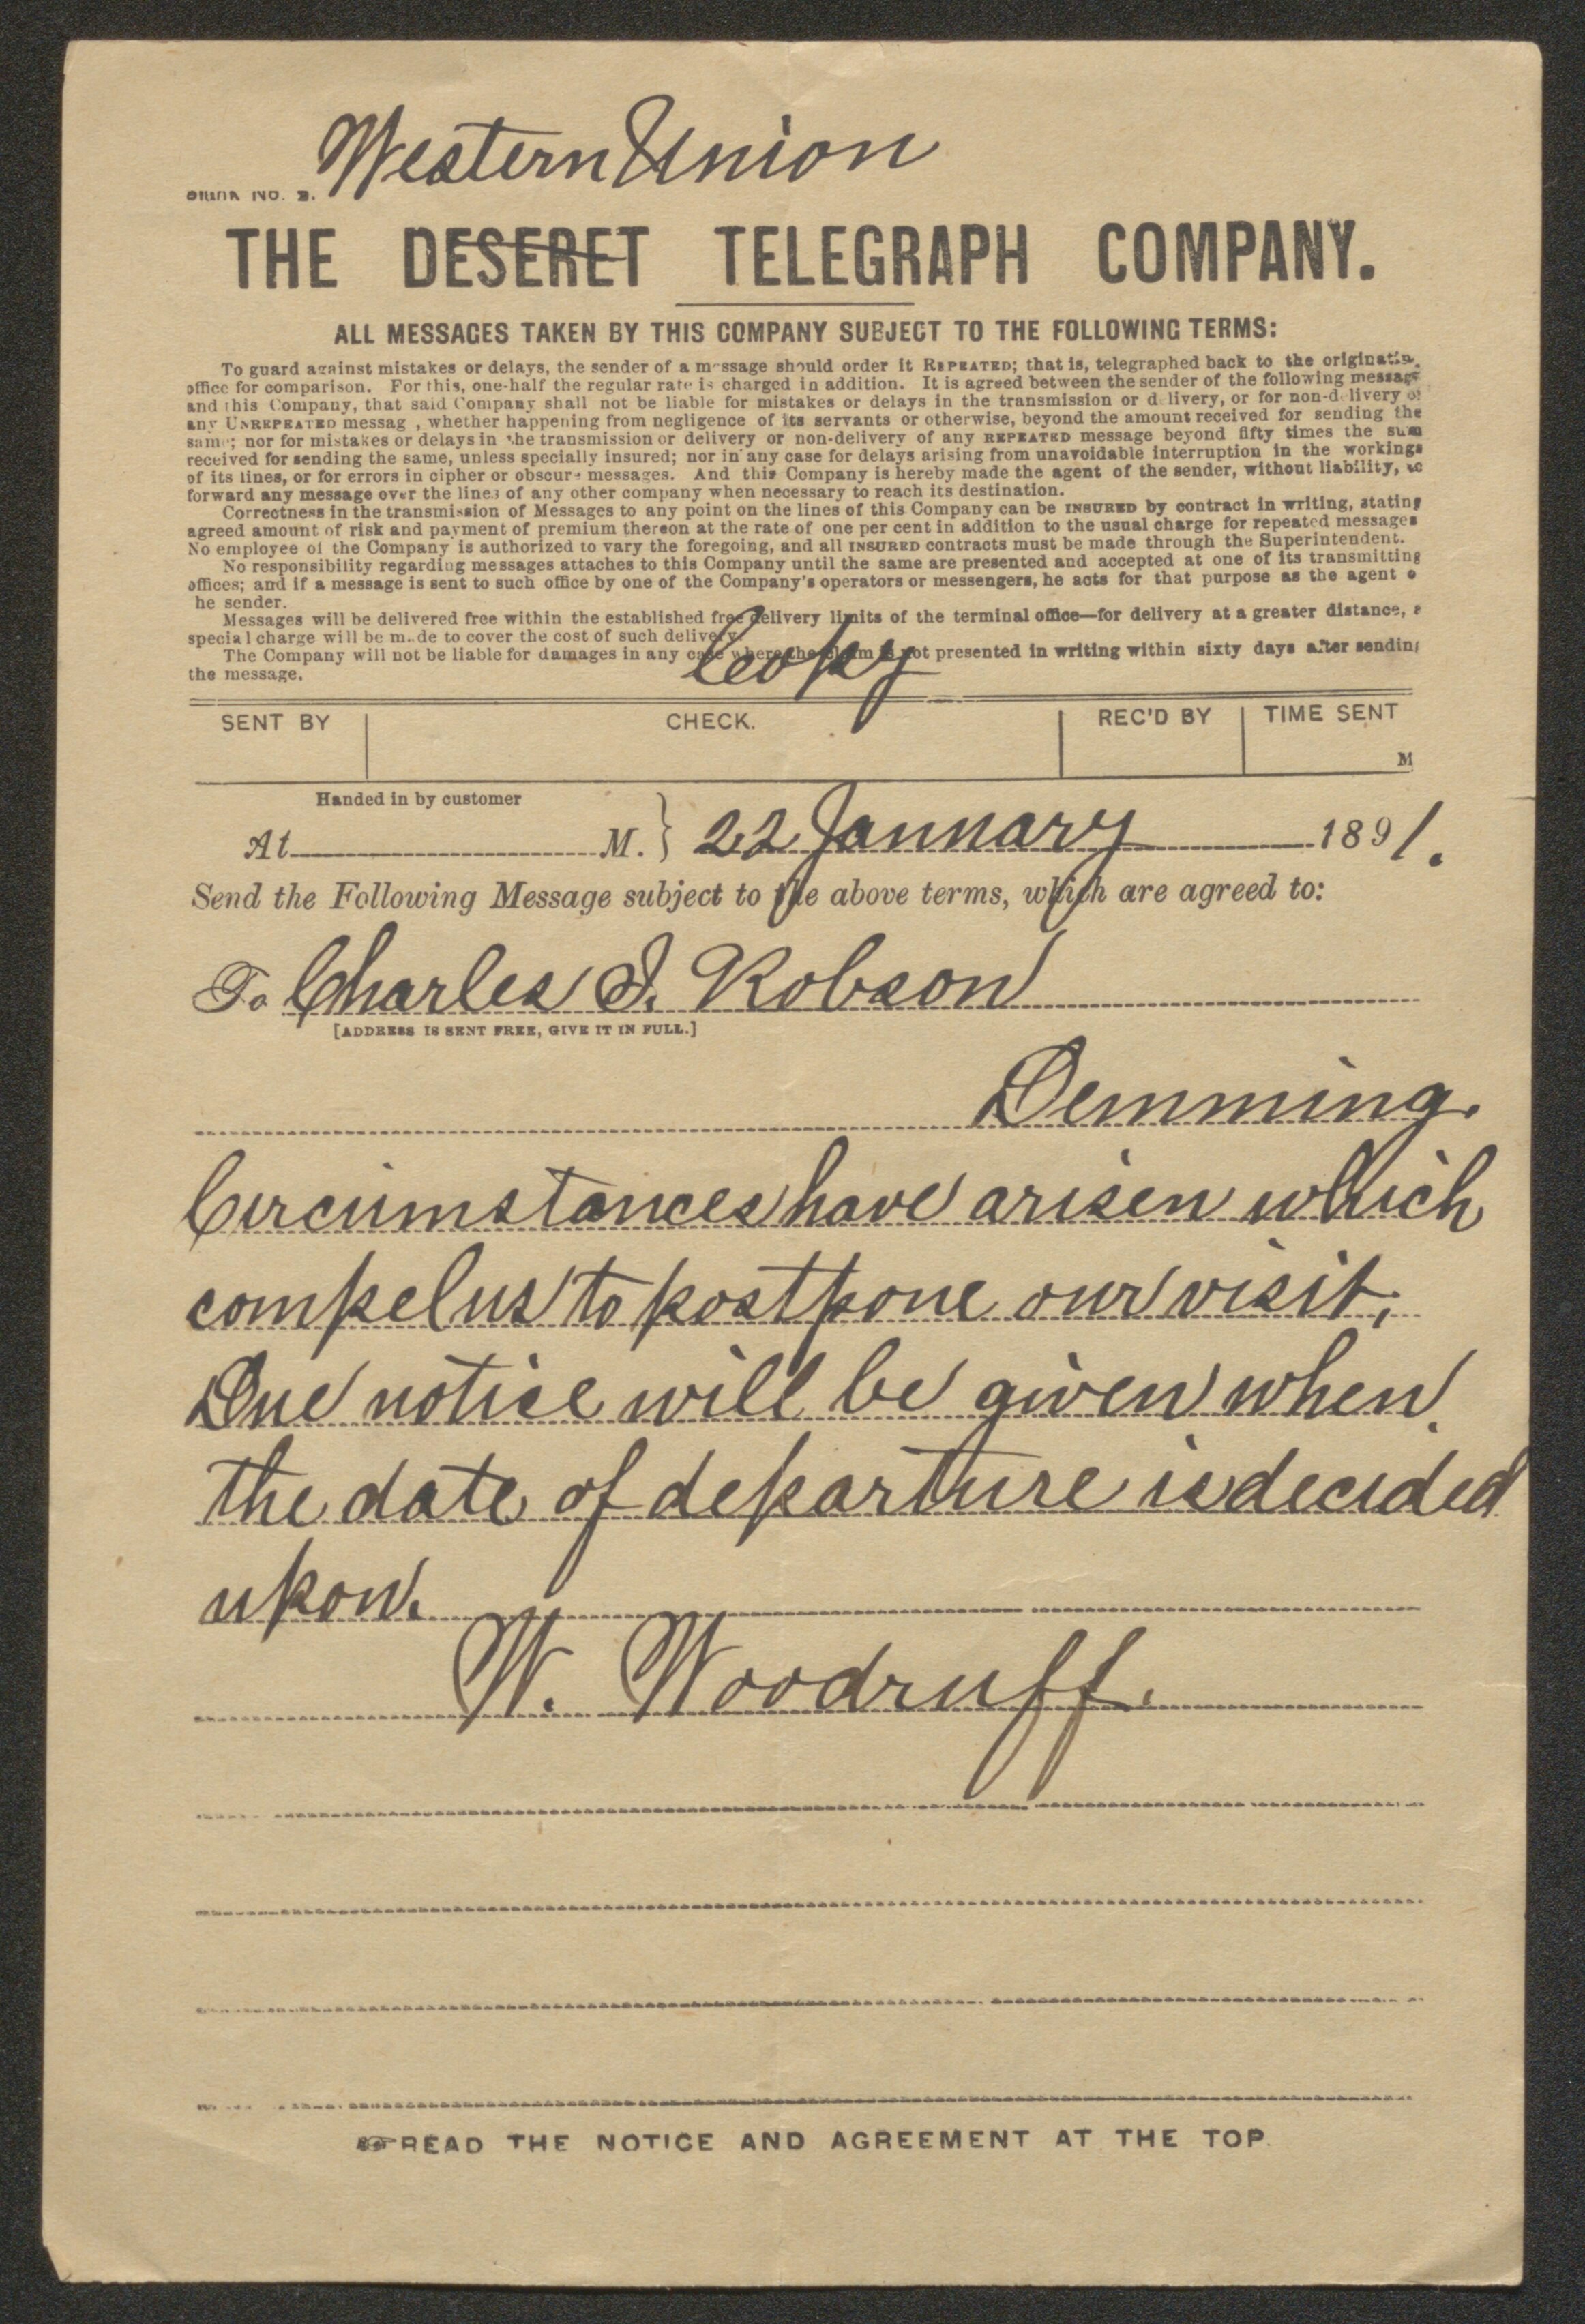 Western Union
Blank No. 2.
THE DESERET TELEGRAPH COMPANY.
ALL MESSAGES TAKEN BY THIS COMPANY SUBJECT TO THE FOLLOWING TERMS:
To guard against mistakes or delays, the sender of a message should order it REPEATED; that is, telegraphed back to the originatin
office for comparison. For this, one-half the regular rate is charged in addition. It is agreed between the sender of the following message
and this Company, that said Company shall not be liable for mistakes or delays in the transmission or delivery, or for non-delivery of
any UNREPEATED messag , whether happening from negligence of its servants or otherwise, beyond the amount received for sending the
same; nor for mistakes or delays in the transmission or delivery or non-delivery of any REPEATED message beyond fifty times the sum
received for sending the same, unless specially insured; nor in any case for delays arising from unavoidable interruption in the workings
of its lines, or for errors in cipher or obscure messages. And this Company is hereby made the agent of the sender, without liability, to
forward any message over the lines of any other company when necessary to reach its destination.
Correctness in the transmission of Messages to any point on the lines of this Company can be INSURED by contract in writing, stating
agreed amount of risk and payment of premium thereon at the rate of one per cent in addition to the usual charge for repeated messages
No employee of the Company is authorized to vary the foregoing, and all INSURED contracts must be made through the Superintendent.
No responsibility regarding messages attaches to this Company until the same are presented and accepted at one of its transmitting
offices; and if a message is sent to such office by one of the Company's operators or messengers, he acts for that purpose as the agent o
he sender.
Messages will be delivered free within the established free delivery limits of the terminal office—for delivery at a greater distance, a
special charge will be made to cover the cost of such delivery.
The Company will not be liable for damages in any case where the claim is not presented in writing within sixty days after sending
the message.
Copy
SENT BY CHECK. REC'D BY TIME SENT
M
Handed in by customer
At M. } 22 January 1891.
Send the Following Message subject to the above terms, which are agreed to:
To Charles I. Robson
[ADDRESS IS SENT FREE, GIVE IT IN FULL.]
Demming.
Circumstances have arisen which
compel us to postpone our visit.
Due notice will be given when
the date of departure is decided
upon.
W. Woodruff.
☞READ THE NOTICE AND AGREEMENT AT THE TOP.